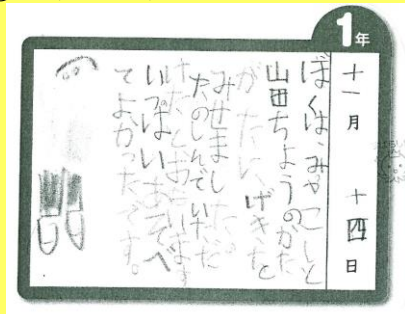 1年
十一月 十四日
ぼくは、みやこしと
山田ちょうのかた
がたに、げきを
みせました。
たのしんでいただ
けたとおもいます
いっぱいあそべ
てよかったです。